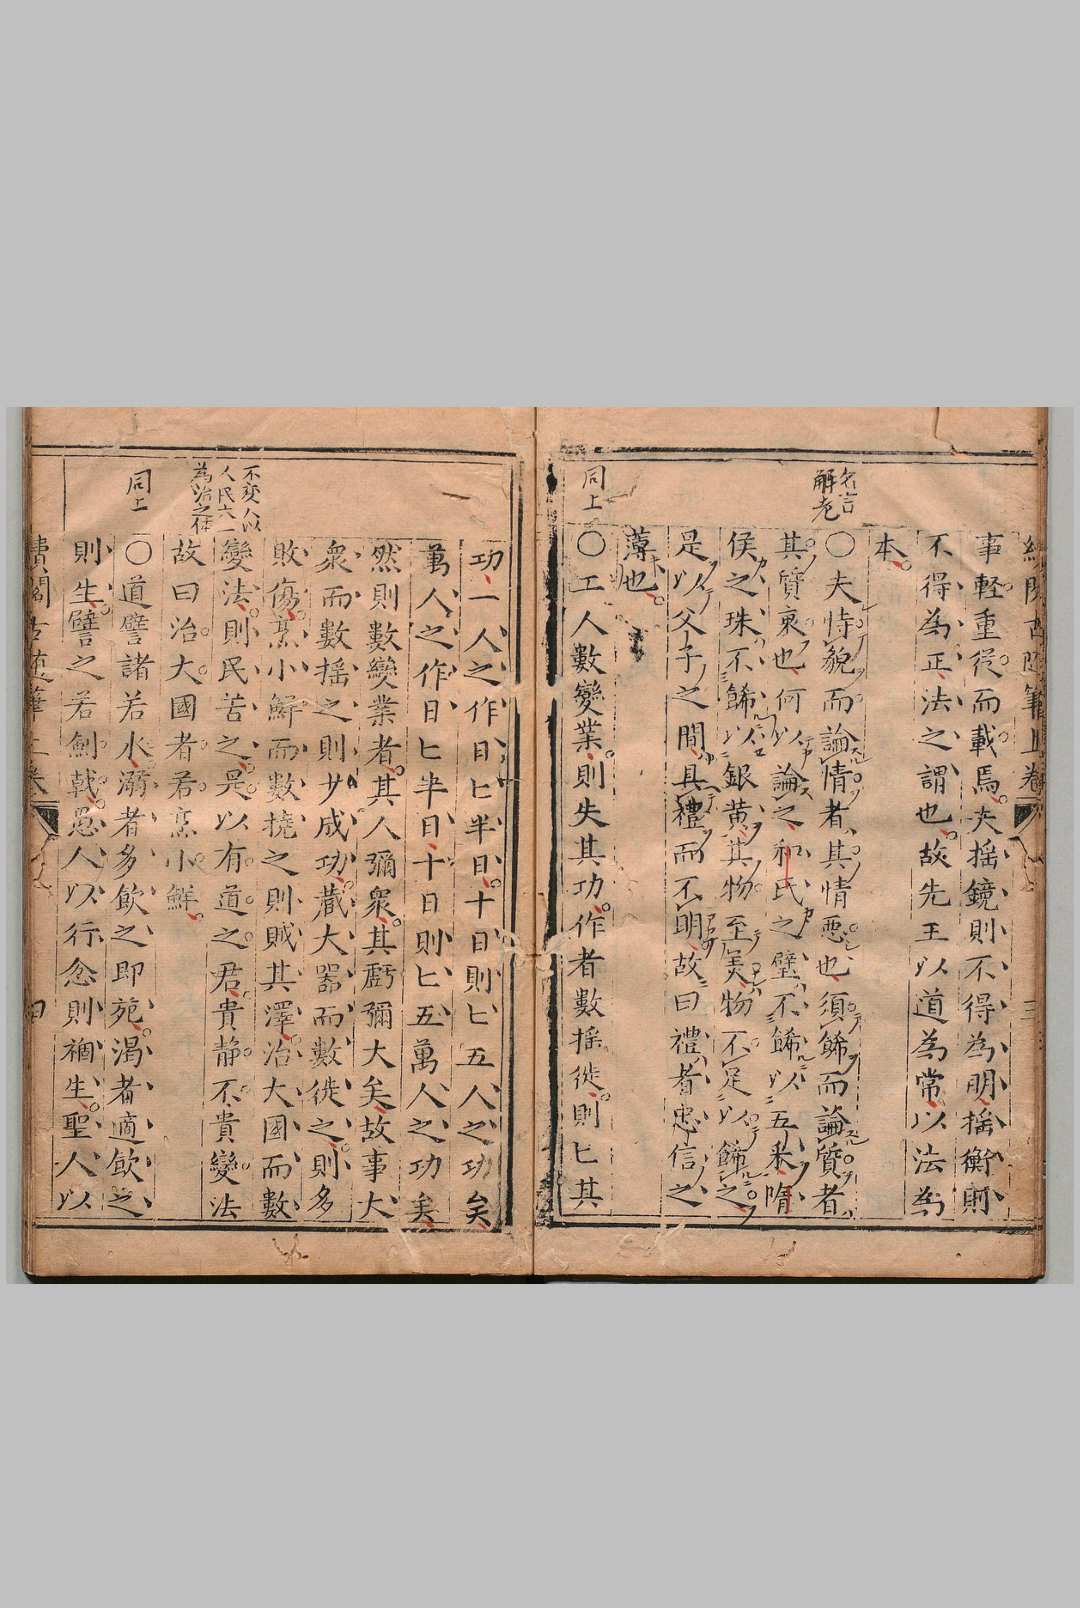 事軽重従而載焉。夫揺鏡則不得為明、揺衡則
不得為正、法之謂也。故先王以道為常、以法為
本。
解老
〇夫恃貌而論情者、其情悪也、須餙而論質者、
其質衰也、何以論之、和氏之璧、不餙以五采、隋
侯之珠、不餙以銀黄、其物至美、物不足以餙之、
是以父子之間、其禮而不明、故曰禮者忠信之
薄也。
同上
〇工人數變業、則失其功。作者數揺徙、則亡其
功、一人之作日亡半日、十日則亡五人之功矣、
萬人之作日亡半日、十日則亡五萬人之功矣、
然則數變業者。其人彌衆。其虧彌大矣、故事大
衆而數揺之則少成功。蔵大器而數徙之。則多
敗傷、烹小鮮而數撓之則賊其澤。治大國而數
不変人以
人民六一
為治之任
變法、則民苦之。是以有道之君、貴静不貴變法
故曰治大國者若烹小鮮。
同上
〇道譬諸若水、溺者多飲之即死。渇者適飲之
則生。譬之若劍戟。愚人以行忿則禍生。聖人以